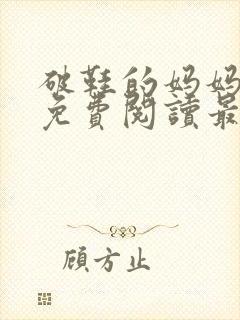 破鞋的妈妈
免費閱讀最
顾方止